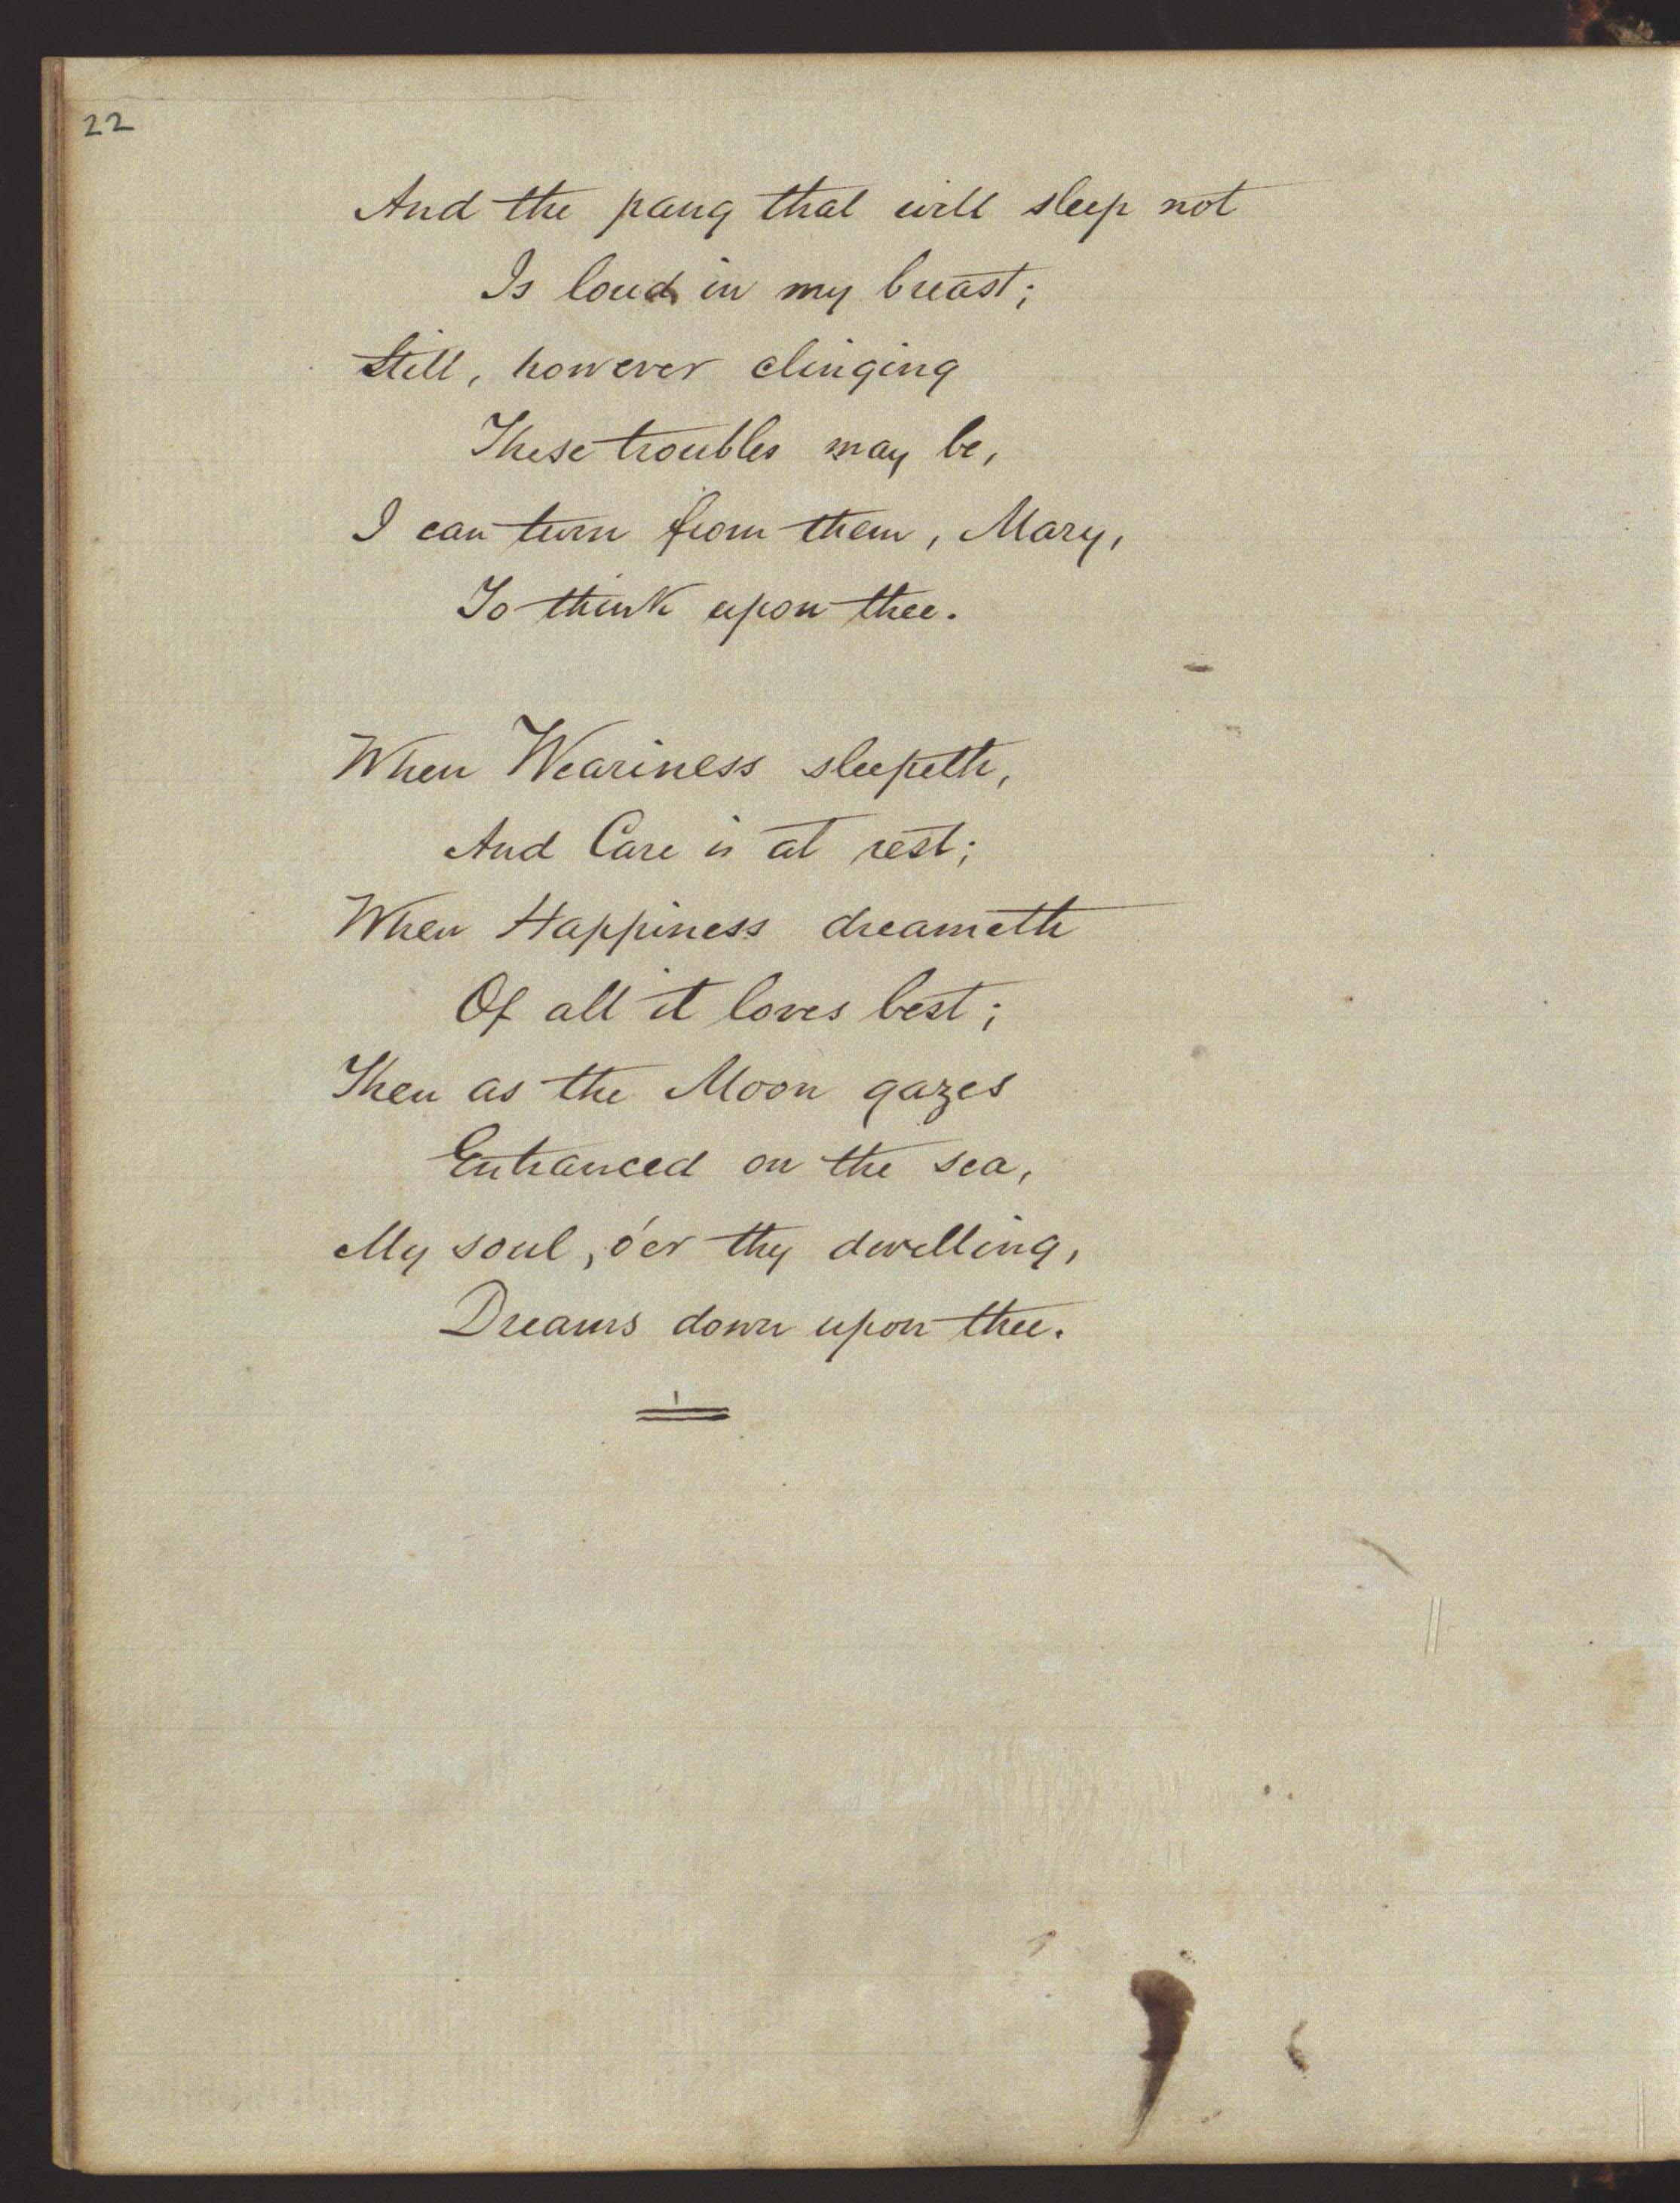 22
And the pang that will sleep not
Is loud in my breast;
Still, however clinging
These troubles may be,
I can turn from them, Mary,
To think upon thee.
When Weariness sleepeth,
And Care is at rest;
When Happiness dreameth
Of all it loves best;
Then as the Moon gazes
Entranced on the sea,
My soul, o'er thy dwelling,
Dreams down upon thee.